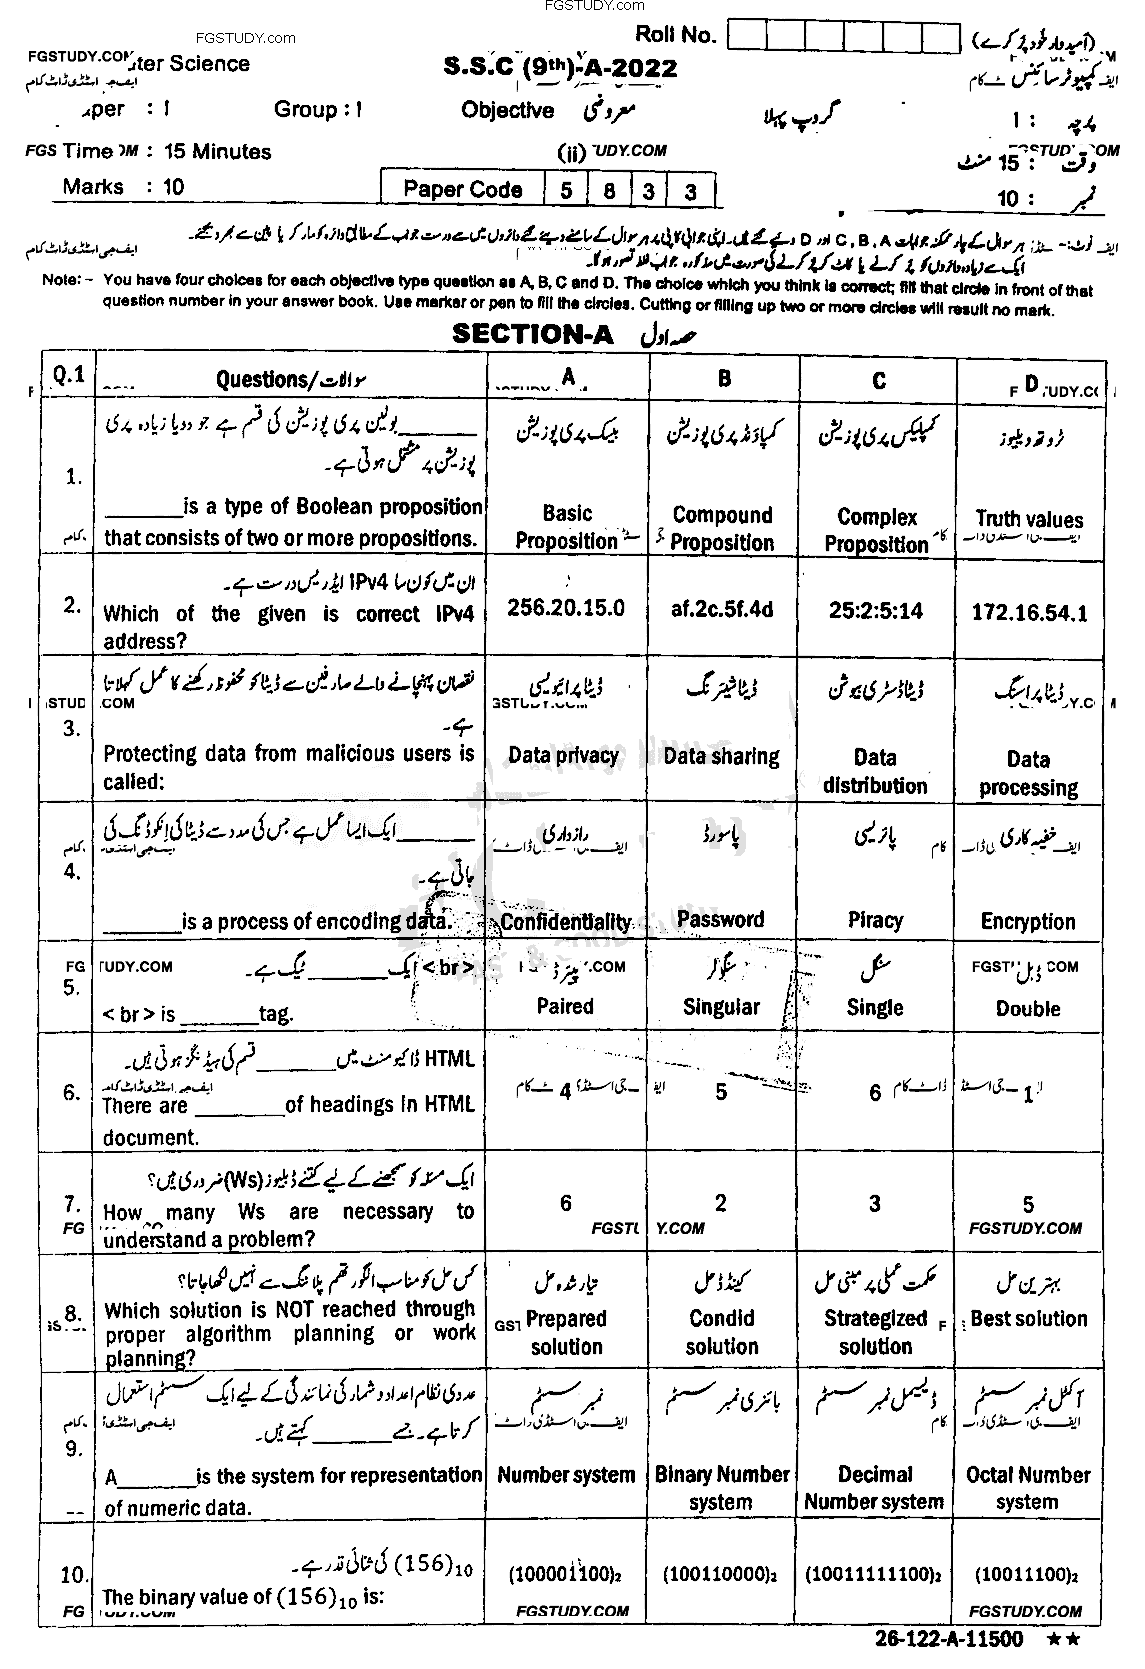 FGSTUDY.COM
FGSTUDY.com
Roll No. (امیدوار خود پُر کرے)
FGSTUDY.COM ter Science S.S.C (9th)-A-2022 کمپیوٹر سائنس
per : I Group : I Objective معروضی گروپ پہلا پرچہ : I
Time : 15 Minutes (ii) وقت : 15 منٹ
Marks : 10 Paper Code 5 8 3 3 نمبر : 10
Note:- You have four choices for each objective type question as A, B, C and D. The choice which you think is correct; fill that circle in front of that
question number in your answer book. Use marker or pen to fill the circles. Cutting or filling up two or more circles will result no mark.
SECTION-A حصہ اول
Q.1 Questions/سوالات A B C D
______بولین پری پوزیشن کی قسم ہے جو دو یا زیادہ پری
پوزیشن پر مشتمل ہوتی ہے۔
بیسک پری پوزیشن کمپاؤنڈ پری پوزیشن کمپلیکس پری پوزیشن ٹروتھ ویلیوز
1.
______is a type of Boolean proposition
that consists of two or more propositions.
Basic Proposition Compound Proposition Complex Proposition Truth values
ان میں کون سا IPv4 ایڈریس درست ہے۔
2. Which of the given is correct IPv4
address?
256.20.15.0 af.2c.5f.4d 25:2:5:14 172.16.54.1
نقصان پہنچانے والے صارفین سے ڈیٹا کو محفوظ رکھنے کا عمل کہلاتا
ہے۔
ڈیٹا پرائیویسی ڈیٹا شیئرنگ ڈیٹا ڈسٹری بیوشن ڈیٹا پراسیسنگ
3. Protecting data from malicious users is
called:
Data privacy Data sharing Data distribution Data processing
______ایک ایسا عمل ہے جس کی مدد سے ڈیٹا کی انکوڈنگ کی
جاتی ہے۔
رازداری پاسورڈ پائریسی خفیہ کاری
4. ______is a process of encoding data.
Confidentiality Password Piracy Encryption
<br> ایک______ٹیگ ہے۔
پیئرڈ سنگولر سنگل ڈبل
5. <br> is ______tag.
Paired Singular Single Double
HTML ڈاکیومنٹ میں______قسم کی ہیڈنگز ہوتی ہیں۔
6. There are ______of headings in HTML
document.
4 5 6 1
ایک مسئلہ کو سمجھنے کے لیے کتنے ڈبلیوز (Ws) ضروری ہیں؟
7. How many Ws are necessary to
understand a problem?
6 2 3 5
FGSTUDY.COM
کس حل کو مناسب الگورتھم پلاننگ سے نہیں لکھا جاتا؟
تیار شدہ حل کینڈڈ حل حکمت عملی پر مبنی حل بہترین حل
8. Which solution is NOT reached through
proper algorithm planning or work
planning?
Prepared solution Condid solution Strategized solution Best solution
عددی نظام اعداد و شمار کی نمائندگی کے لیے ایک سسٹم استعمال
کرتا ہے۔ جسے______کہتے ہیں۔
نمبر سسٹم بائنری نمبر سسٹم ڈیسیمل نمبر سسٹم آکٹل نمبر سسٹم
9. A______is the system for representation
of numeric data.
Number system Binary Number system Decimal Number system Octal Number system
(156)10 کی ثنائی قدر ہے۔
10. The binary value of (156)10 is:
(100001100)2 (100110000)2 (10011111100)2 (10011100)2
FGSTUDY.COM FGSTUDY.COM
26-122-A-11500 ★★